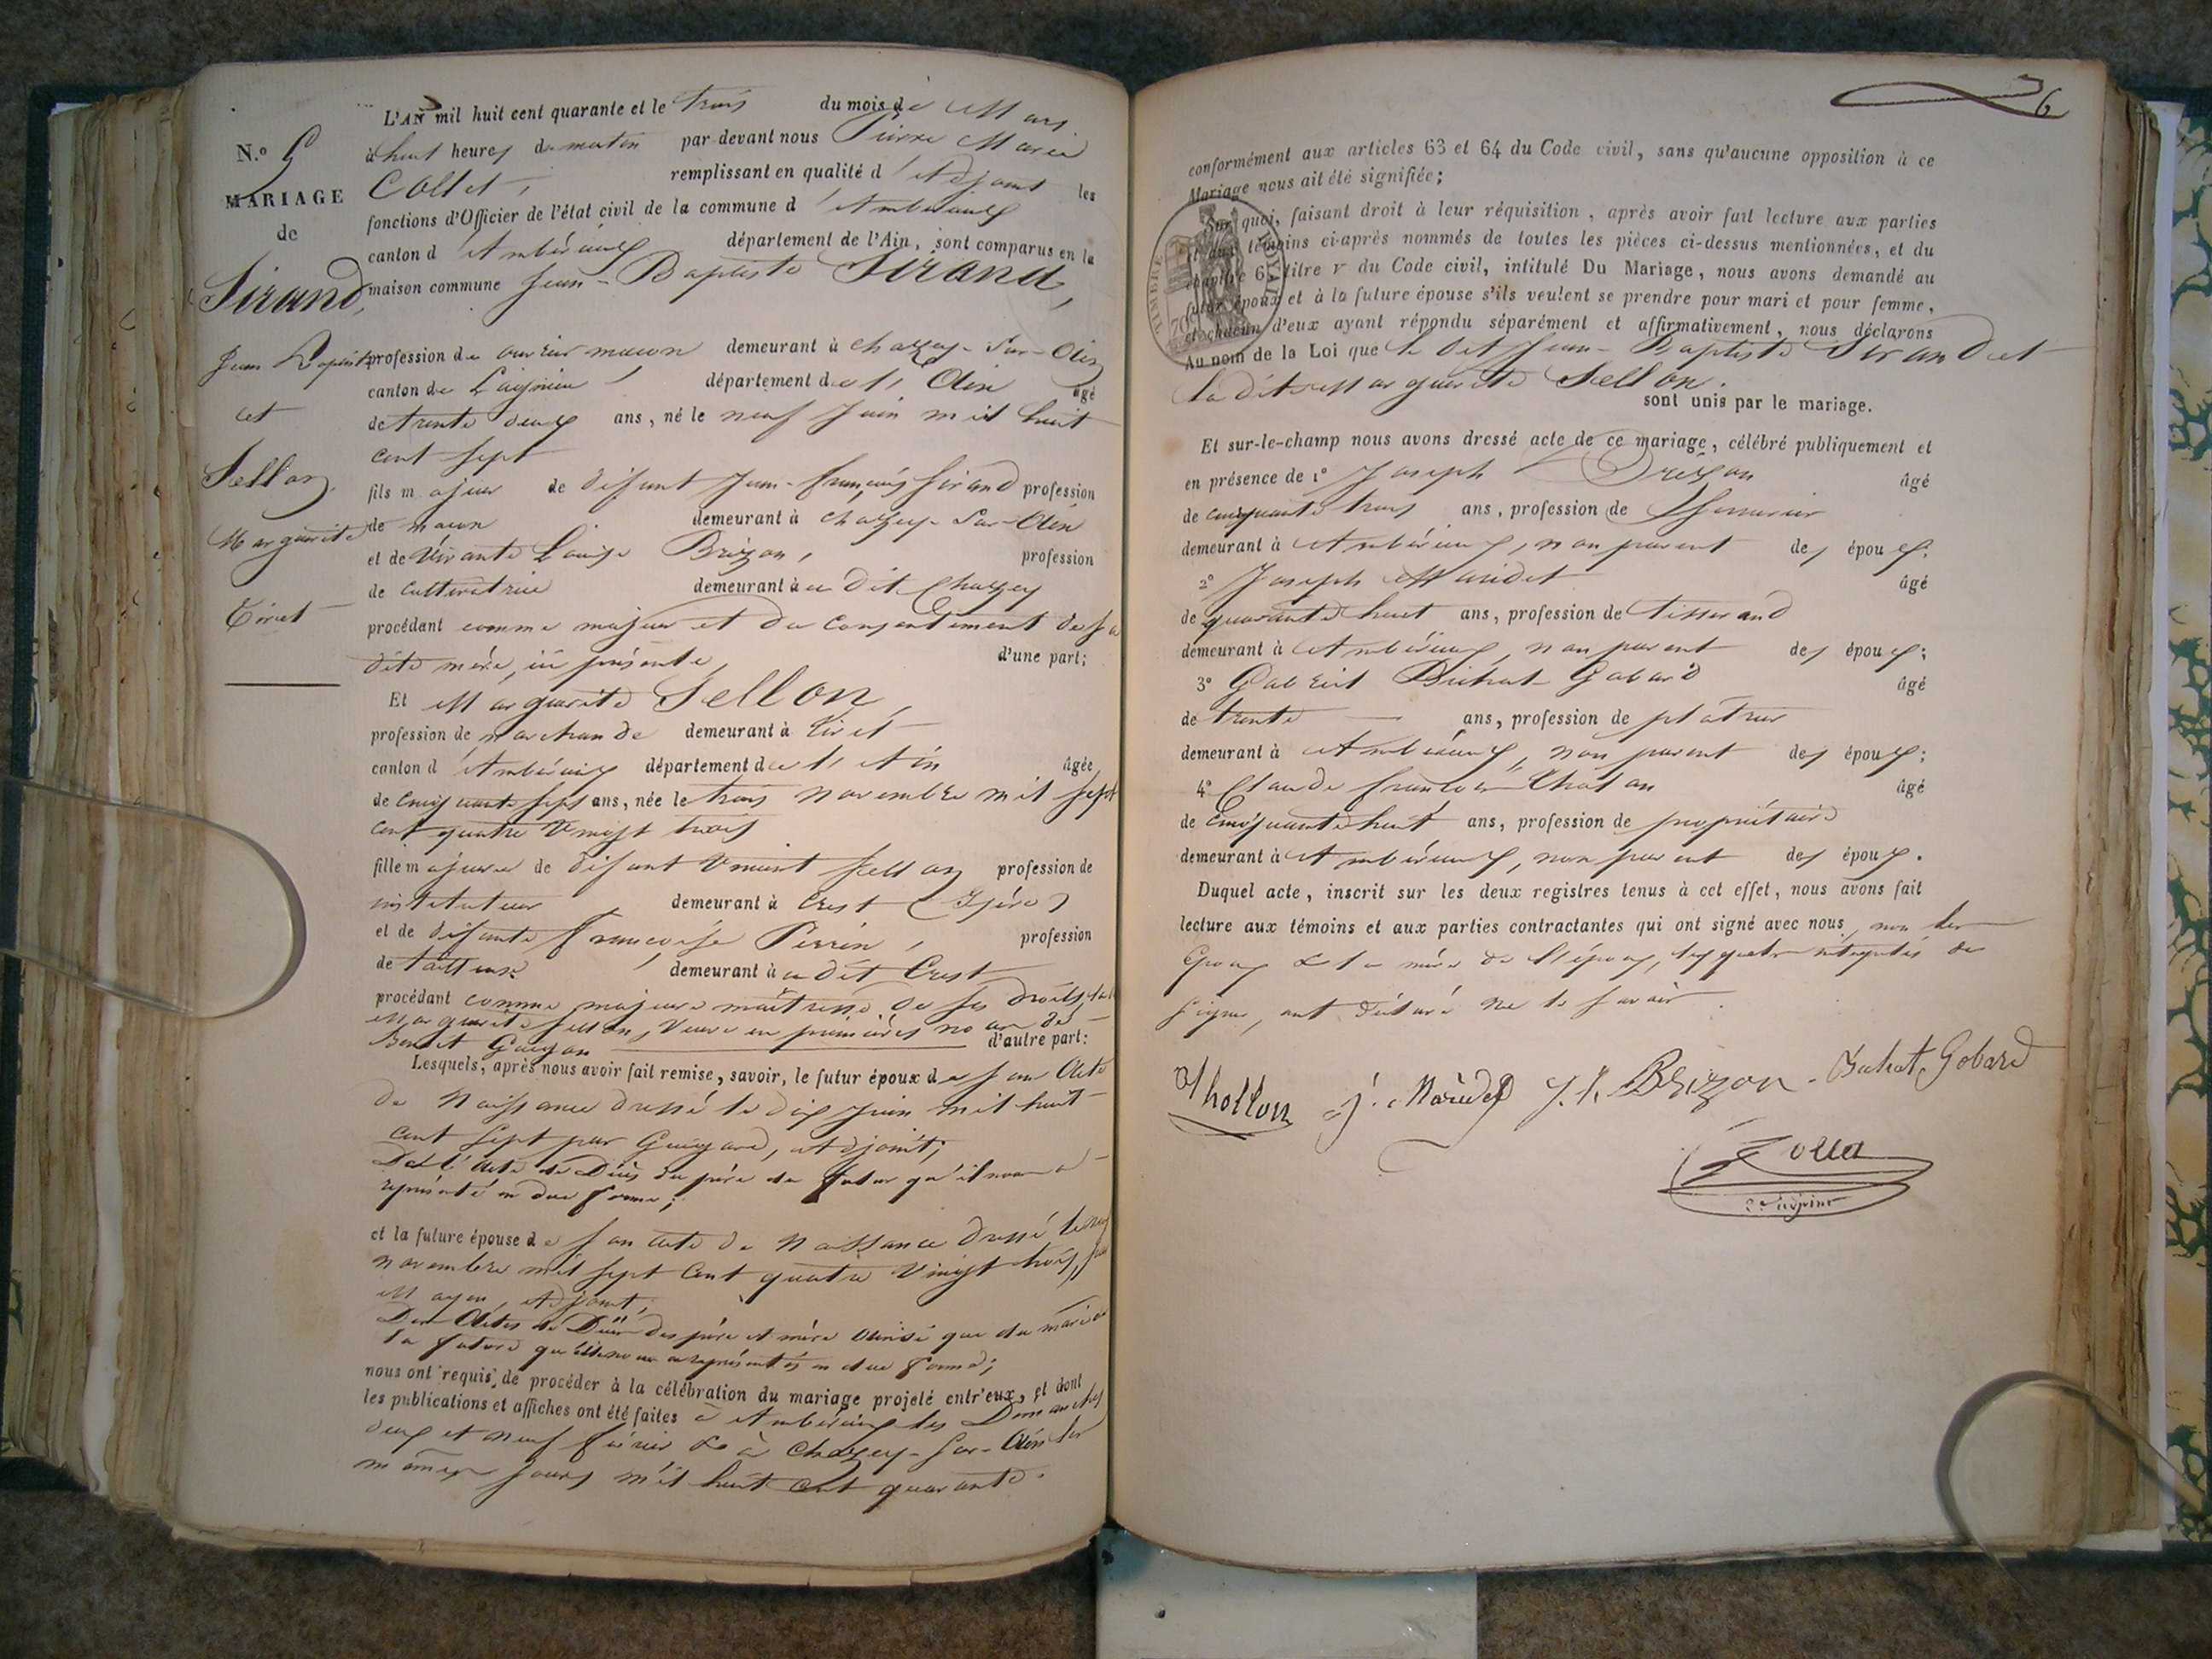 N.o 5
MARIAGE
de
Sirand,
Jean Baptiste
et
Sellon
Marguerite
Tiret
L'AN mil huit cent quarante et le trois du mois de Mars
à huit heures du matin par devant nous Pierre Marie
Collet, remplissant en qualité d'Adjoint les
fonctions d'Officier de l'état civil de la commune d'Ambérieux
canton d'Ambérieux département de l'Ain, sont comparus en la
maison commune Jean-Baptiste Sirand,
profession de ouvrier maçon demeurant à Chazey-Sur-Ain
canton de Lagnieu département de l'Ain âgé
de trente deux ans, né le neuf Juin mil huit
cent sept
fils majeur de défunt Jean-françois Sirand profession
de maçon demeurant à Chazey-Sur-Ain
et de vivante Louise Brizon, profession
de cultivatrice demeurant à u dit Chazey
procédant comme majeur et du consentement de sa
dite mère, ici présente, d'une part;
Et Marguerite Sellon,
profession de marchande demeurant à Tiret
canton d'Ambérieux département de l'Ain âgée
de cinquante six ans, née le trois novembre mil sept
cent quatre vingt trois
fille majeure de défunt Vincent Sellon profession de
instituteur demeurant à Crest (Isère)
et de défunte françoise Perrin, profession
de demeurant à u dit Crest
procédant comme majeure maîtresse de ses droits, la
Marguerite Sellon, veuve en premières noces de
Benoit Guigon d'autre part:
Lesquels, après nous avoir fait remise, savoir, le futur époux de son Acte
de Naissance dressé le dix Juin mil huit
cent sept par Guigard, adjoint;
De l'acte de Décès du père du futur qu'il nous a
représenté en due forme;
et la future épouse de son acte de Naissance dressé le
novembre mil sept cent quatre vingt trois, par
adjoint;
Des Actes de Décès des père et mère ainsi que du mari de
la future qu'elle nous a représentés en due forme;
nous ont requis de procéder à la célébration du mariage projeté entr'eux, et dont
les publications et affiches ont été faites à Ambérieux les Dimanches
deux et neuf février & à Chazey-Sur-Ain les
mêmes jours mil huit cent quarante.
6
conformément aux articles 63 et 64 du Code civil, sans qu'aucune opposition à ce
Mariage nous ait été signifiée;
Sur quoi, faisant droit à leur réquisition, après avoir fait lecture aux parties
et aux témoins ci-après nommés de toutes les pièces ci-dessus mentionnées, et du
chapitre 6, titre v du Code civil, intitulé Du Mariage, nous avons demandé au
futur époux et à la future épouse s'ils veulent se prendre pour mari et pour femme,
et chacun d'eux ayant répondu séparément et affirmativement, nous déclarons
TIMBRE ROYAL
70c
Au nom de la Loi que le dit Jean-Baptiste Sirand et
la dite Marguerite Sellon.
sont unis par le mariage.
Et sur-le-champ nous avons dressé acte de ce mariage, célébré publiquement et
en présence de 1o Joseph Brizon âgé
de cinquante trois ans, profession de
demeurant à Ambérieux, non parent des époux;
2o Joseph Maridet âgé
de quarante huit ans, profession de tisserand
demeurant à Ambérieux, non parent des époux;
3o Gabriel Buchat-Gobard âgé
de trente ans, profession de plâtrier
demeurant à Ambérieux, non parent des époux;
4o Claude françois Tholon âgé
de cinquante huit ans, profession de propriétaire
demeurant à Ambérieux, non parent des époux.
Duquel acte, inscrit sur les deux registres tenus à cet effet, nous avons fait
lecture aux témoins et aux parties contractantes qui ont signé avec nous, non les
époux & la mère de l'époux, lesquels réquisés de
signer, ont déclaré ne le savoir.
Thollon J. Maridet J. Brizon Buchat Gobard
Collet
adjoint